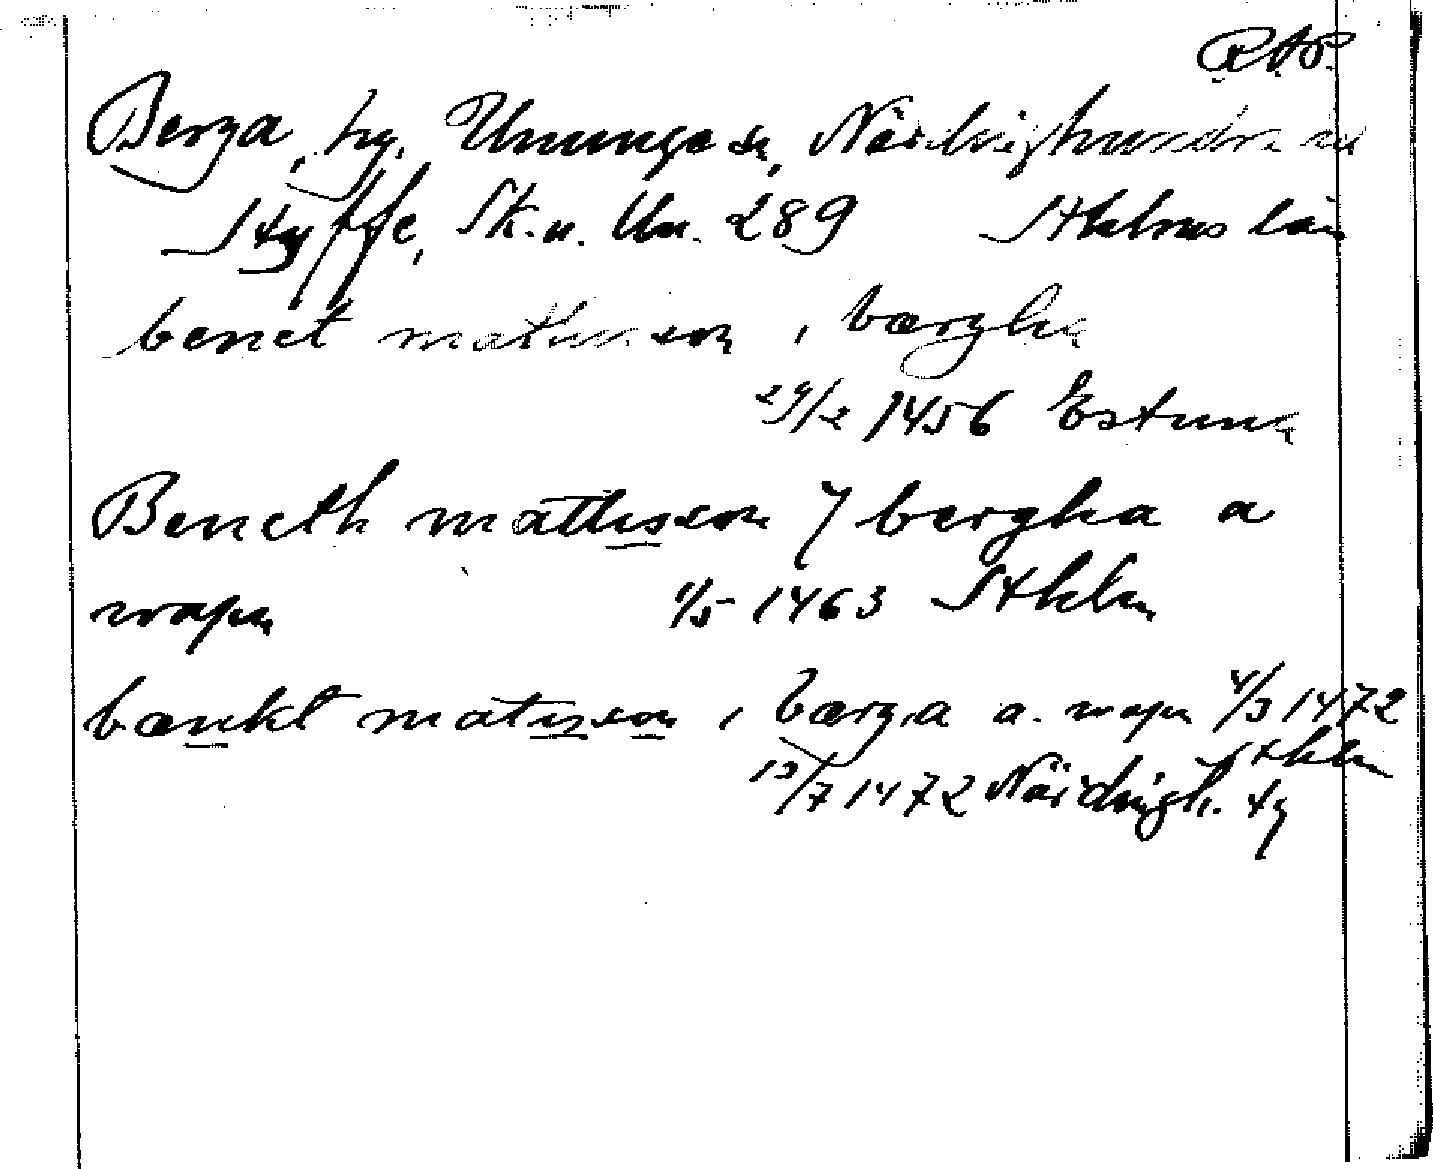 RAP.
Berga, by, Ununge sn, Närdinghundra sn
Styffe, Sk. u. Un. 289 Sthlms län
benct matisson i bærgha
29/2 1456 Estuna
Beneth mattisson y bergha a
wapn 1/5 1463 Sthlm
bænkt matisson i bærga a. wapn 4/3 1472
Sthlm
13/7 1472 Närdingh. tg